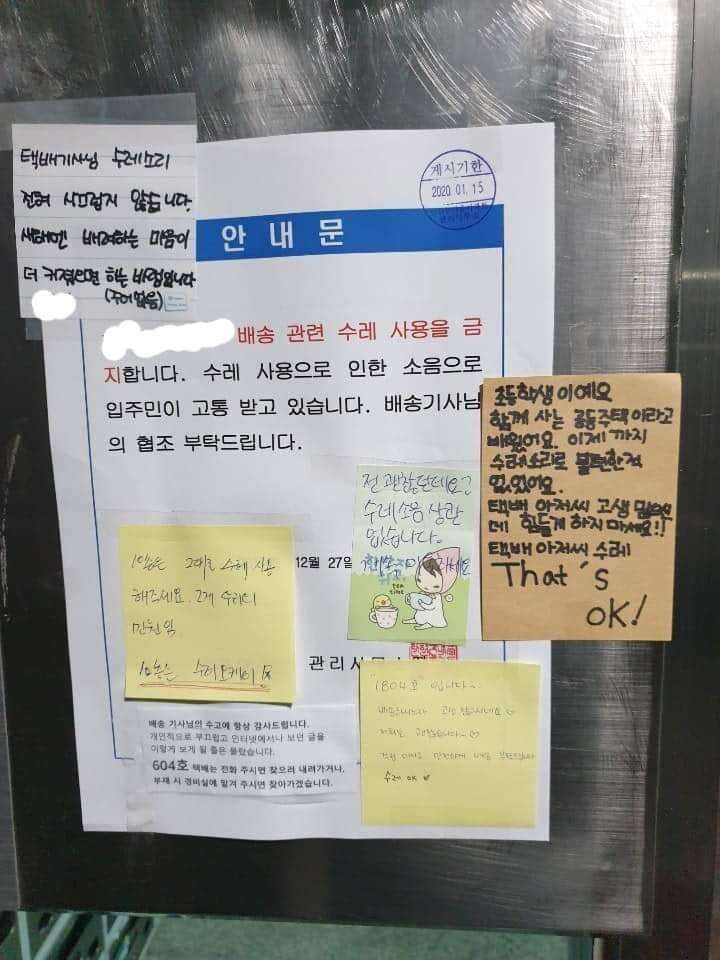 택배기사님 수레소리
전혀 시끄럽지 않습니다.
배려하는 마음이
더 커졌으면 하는 바램입니다
게시기한
2020. 01. 15
안 내 문
배송 관련 수레 사용을 금
지합니다. 수레 사용으로 인한 소음으로
입주민이 고통 받고 있습니다. 배송기사님
의 협조 부탁드립니다.
12월 27일
관리사무소
전 괜찮던데요?
수레소음 상관
없습니다.
tea
time
초등학생이예요
함께 사는 공동주택이라고
배웠어요. 이제까지
수레소리로 불편한적
없었어요.
택배 아저씨 고생 많은
데 힘들게 하지마세요!!
택배 아저씨 수레
That's
OK!
수레 사용
해주세요.
배송 기사님의 수고에 항상 감사드립니다.
개인적으로 부끄럽고 인터넷에서나 보던 글을
이렇게 보게 될 줄은 몰랐습니다.
604호 택배는 전화 주시면 찾으러 내려가거나,
부재 시 경비실에 맡겨 주시면 찾아가겠습니다.
"1804호" 입니다~
수레 OK